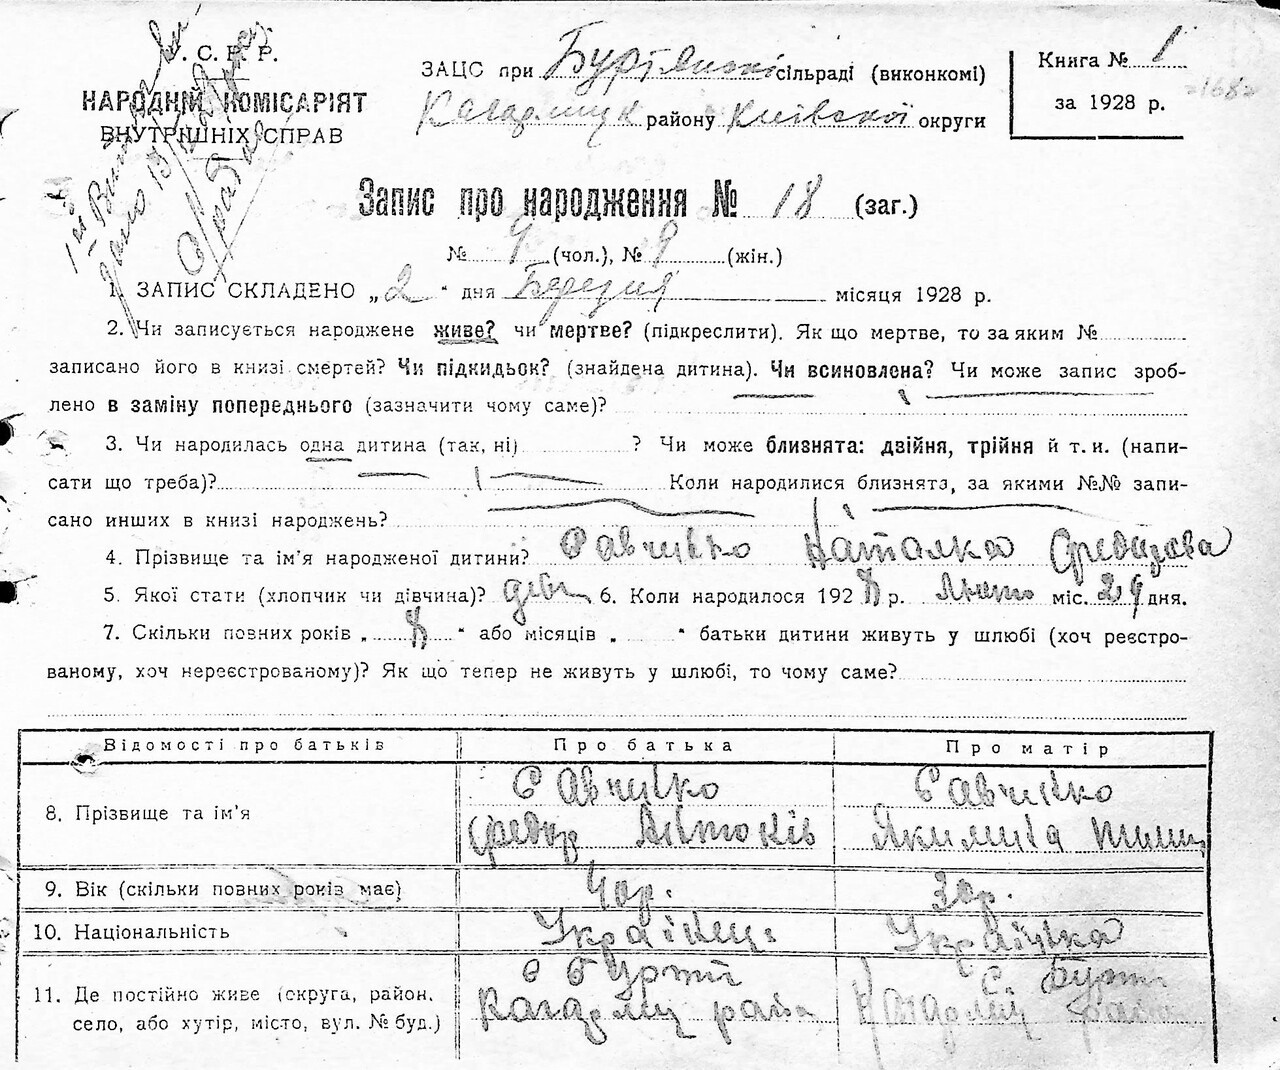 . С. Р. Р.
НАРОДНІЙ КОМІСАРІЯТ
ВНУТРІШНІХ СПРАВ
ЗАЦС при Буртянській сільраді (виконкомі)
Кагарлицьк району Київської округи
Книга № 1
за 1928 р.
Запис про народження № 18 (заг.)
№ 9 (чол.), № 9 (жін.)
1. ЗАПИС СКЛАДЕНО „2“ дня Березня місяця 1928 р.
2. Чи записується народжене живе? чи мертве? (підкреслити). Як що мертве, то за яким №
записано його в книзі смертей? Чи підкидьок? (знайдена дитина). Чи всиновлена? Чи може запис зроб-
лено в заміну попереднього (зазначити чому саме)?
3. Чи народилась одна дитина (так, ні) ? Чи може близнята: двійня, трійня й т. и. (напи-
сати що треба)? Коли народилися близнята, за якими №№ запи-
сано инших в книзі народжень?
4. Прізвище та ім'я народженої дитини? Савченко Наталка Федорова
5. Якої стати (хлопчик чи дівчина)? дівч 6. Коли народилося 1928 р. Лютого міс. 29 дня.
7. Скільки повних років „8“ або місяців „ “ батьки дитини живуть у шлюбі (хоч реєстро-
ваному, хоч нереєстрованому)? Як що тепер не живуть у шлюбі, то чому саме?
Відомості про батьків Про батька Про матір
8. Прізвище та ім'я Савченко Савченко
Федор Антонів Якилина
9. Вік (скільки повних років має) 40 р. 30 р.
10. Національність Українець Українка
11. Де постійно живе (округа, район, с Бурти с. Бурти
село, або хутір, місто, вул. № буд.) Кагарлиц район Кагарлиц район